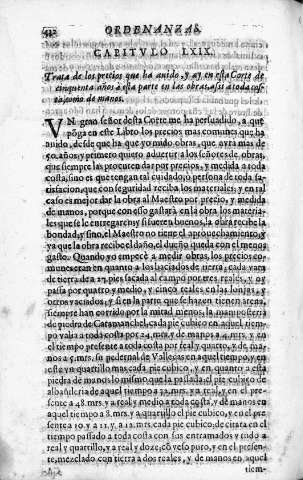 ORDENANZAS.
CAPITVLO LXIX.
Trata de los precios que ha auido, y ay en esta Corte de
cinquenta años à esta parte en las obras, assi a toda cos-
ta, como de manos.
VN gran señor desta Corte, me ha persuadido, a que
pōga en este Libro los precios mas comunes que ha
auido, desde que ha que yo mido obras, que aurà mas de
50. años, y primero quiero aduertir a los señores de obras,
que siempre las procuren dar por precios, y medida a toda
costa, sino es que tengan tal cuidado, o persona de toda sa-
tisfacion, que con seguridad reciba los materiales, y en tal
caso es mejor dar la obra al Maestro por precio, y medida
de manos, porque con esto gastarà en la obra los materia-
les que se le entregaren, y si fueren buenos, la obra recibe la
bondad, y sino, el Maestro no tiene el aprouechamiento, y
ya que la obra recibe el daño, el dueño queda con el menos
gasto. Quando yo empecè a medir obras, los precios co-
munes eran en quanto a los vaciados de tierra, cada vara
de tierra de a 27. pies sacada al campo por tres reales, y
passa por quatro y medio, y cinco reales, en las
otros vaciados, y si en la parte que se hazen tienen arena,
siempre han corrido por la mitad menos, la mamposteria
de piedra de Caramanchel, cada pie cubico en aquel tiem-
po valia a toda costa por 24. mrs. y de manos a 4. mrs. y
el tiempo presente a toda costa por real y quarto, y de ma-
nos a 5. mrs. su pedernal de Vallecas en aquel tiempo, y en
este vn quartillo mas cada pie cubico, y en quanto a esta
piedra de manos lo mismo que la passada, el pie cubico de
albañileria de aquel tiempo
sente a 48. mrs. y a real y medio a toda costa, y de manos en
aquel tiempo a 8. mrs. y a quartillo el pie cubico, y en el pre
sente a 10. y a 11. y a 12. mrs. cada pie cubico, de citara en el
tiempo passado a toda costa con sus entramados y
real y quartillo, y a real y doze,
sente, mezclado con tierra a dos reales, y de manos en aquel
tiem-